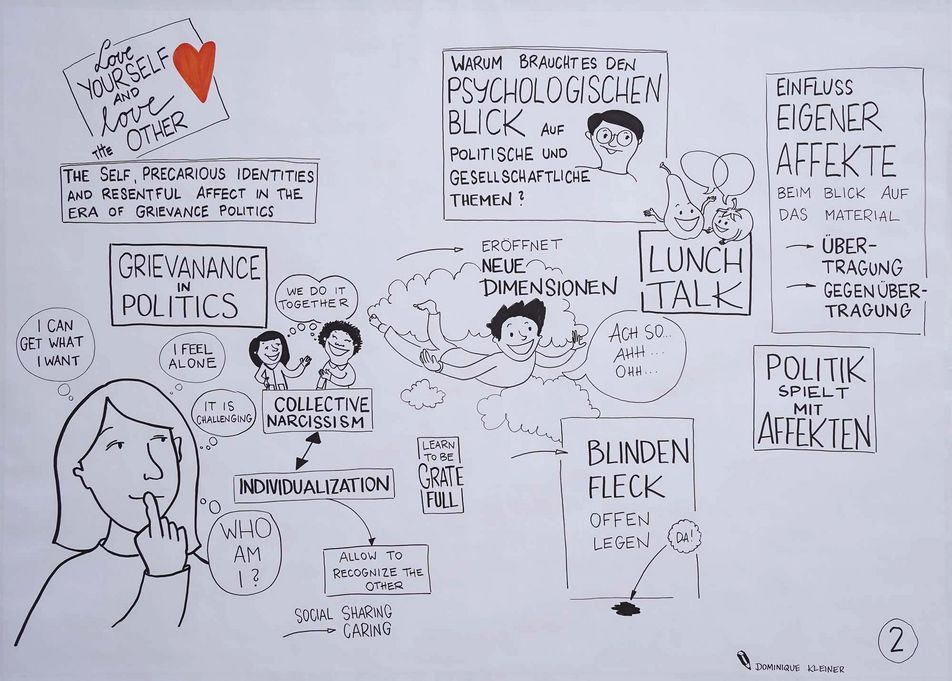 Love
YOURSELF
AND
love
THE OTHER
THE SELF, PRECARIOUS IDENTITIES
AND RESENTFUL AFFECT IN THE
ERA OF GRIEVANCE POLITICS
GRIEVANANCE
IN
POLITICS
I CAN
GET WHAT
I WANT
I FEEL
ALONE
IT IS
CHALLENGING
WHO
AM
I?
WE DO IT
TOGETHER
COLLECTIVE
NARCISSISM
INDIVIDUALIZATION
ALLOW TO
RECOGNIZE THE
OTHER
SOCIAL SHARING
CARING
LEARN
TO BE
GRATE
FULL
WARUM BRAUCHT ES DEN
PSYCHOLOGISCHEN
BLICK AUF
POLITISCHE UND
GESELLSCHAFTLICHE
THEMEN?
LUNCH
TALK
ERÖFFNET
NEUE
DIMENSIONEN
ACH SO...
AHH...
OHH...
BLINDEN
FLECK
OFFEN
LEGEN
DA!
EINFLUSS
EIGENER
AFFEKTE
BEIM BLICK AUF
DAS MATERIAL
ÜBER-
TRAGUNG
GEGENÜBER-
TRAGUNG
POLITIK
SPIELT
MIT
AFFEKTEN
DOMINIQUE KLEINER
2